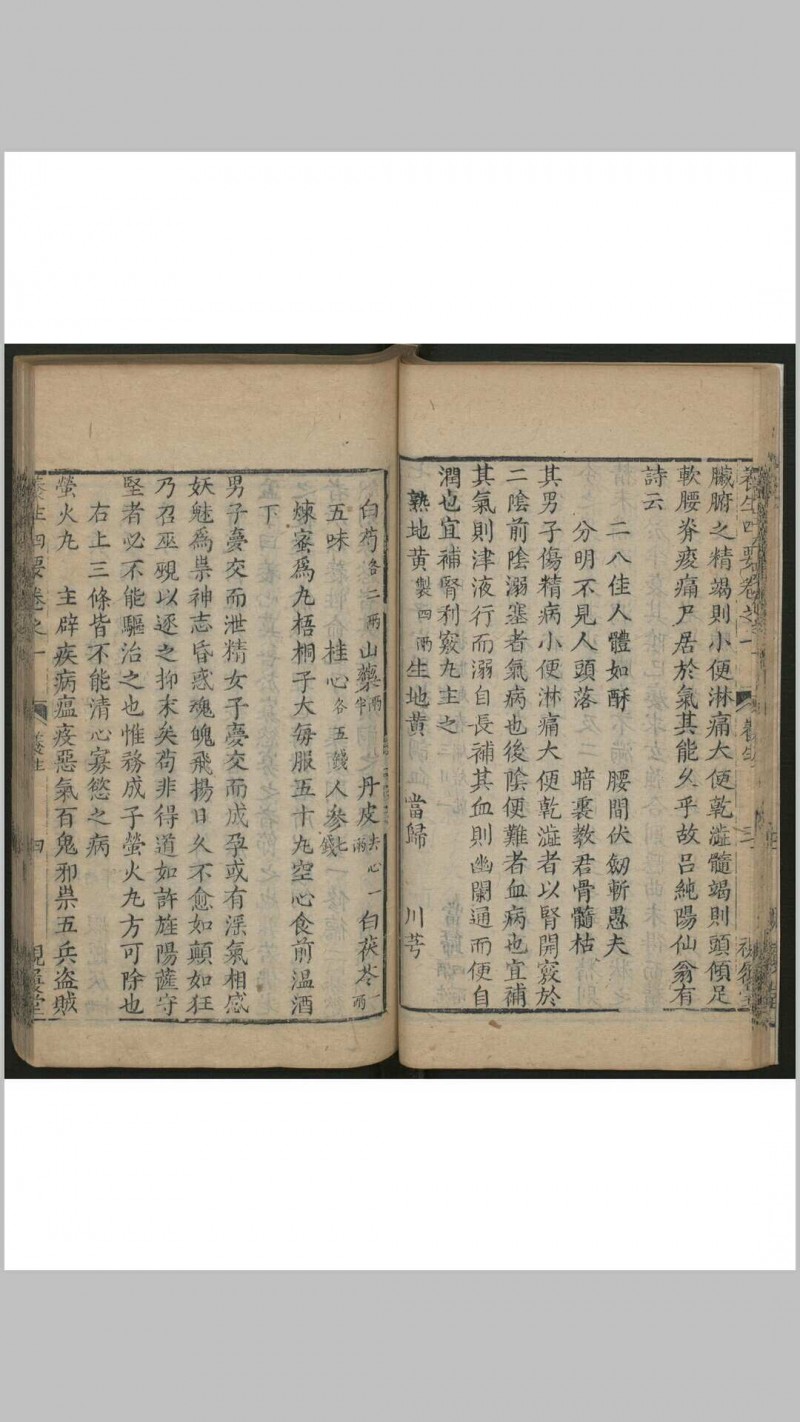 養生四要卷之一 養生 三
臟腑之精竭則小便淋痛大便乾澁髓竭則頭傾足
軟腰脊痠痛尸居於氣其能久乎故呂純陽仙翁有
詩云
二八佳人體如酥 腰間伏劒斬愚夫
分明不見人頭落 暗裏教君骨髓枯
其男子傷精病小便淋痛大便乾澁者以腎開竅於
二陰前陰溺塞者氣病也後陰便難者血病也宜補
其氣則津液行而溺自長補其血則幽關通而便自
潤也宜補腎利竅丸主之
熟地黄製四兩 生地黄 當歸 川芎
白芍各二兩 山藥兩半 丹皮去心一兩 白茯苓一兩
五味 桂心各五錢 人參七錢
煉蜜爲丸梧桐子大每服五十丸空心食前温酒
下
男子夢交而泄精女子夢交而成孕或有淫氣相感
妖魅爲祟神志昏惑魂魄飛揚日久不愈如顛如狂
乃召巫覡以逐之抑末矣苟非得道如許旌陽薩守
堅者必不能驅治之也惟務成子螢火丸方可除也
右上三條皆不能清心寡慾之病
螢火丸 主辟疾病瘟疫惡氣百鬼邪祟五兵盗賊
養生四要卷之一 養生 四